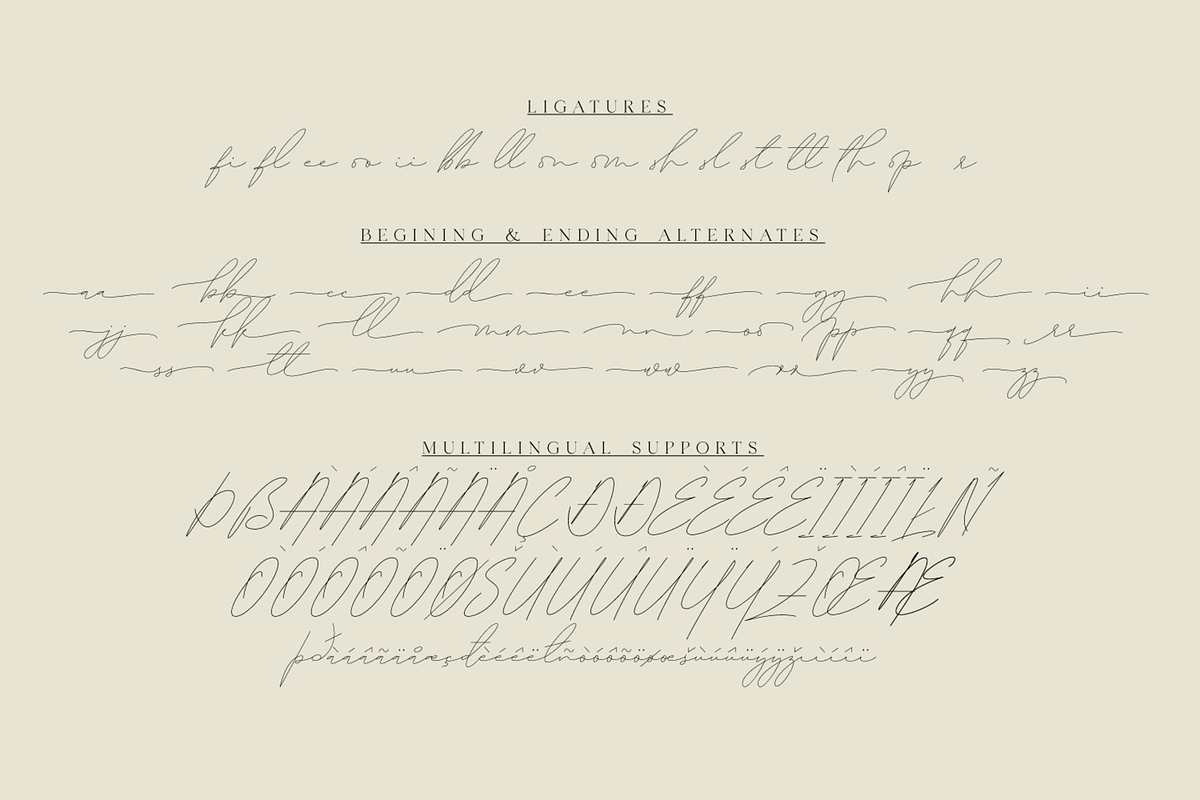 LIGATURES
fi fl ee oo ii bb ll on om sh sl st tt th op r
BEGINING & ENDING ALTERNATES
aa bb cc dd ee ff gg hh ii
jj kk ll mm nn oo pp qq rr
ss tt uu vv ww xx yy zz
MULTILINGUAL SUPPORTS
ÞßÀÁÂÃÄÅÇÐĐÈÉÊËÌÍÎÏŁÑ
ÒÓÔÕÖØŠÙÚÛÜŸÝŽŒÆ
þðàáâãäåæçđèéêëłñòóôõöøœšùúûüýÿžıìíîï